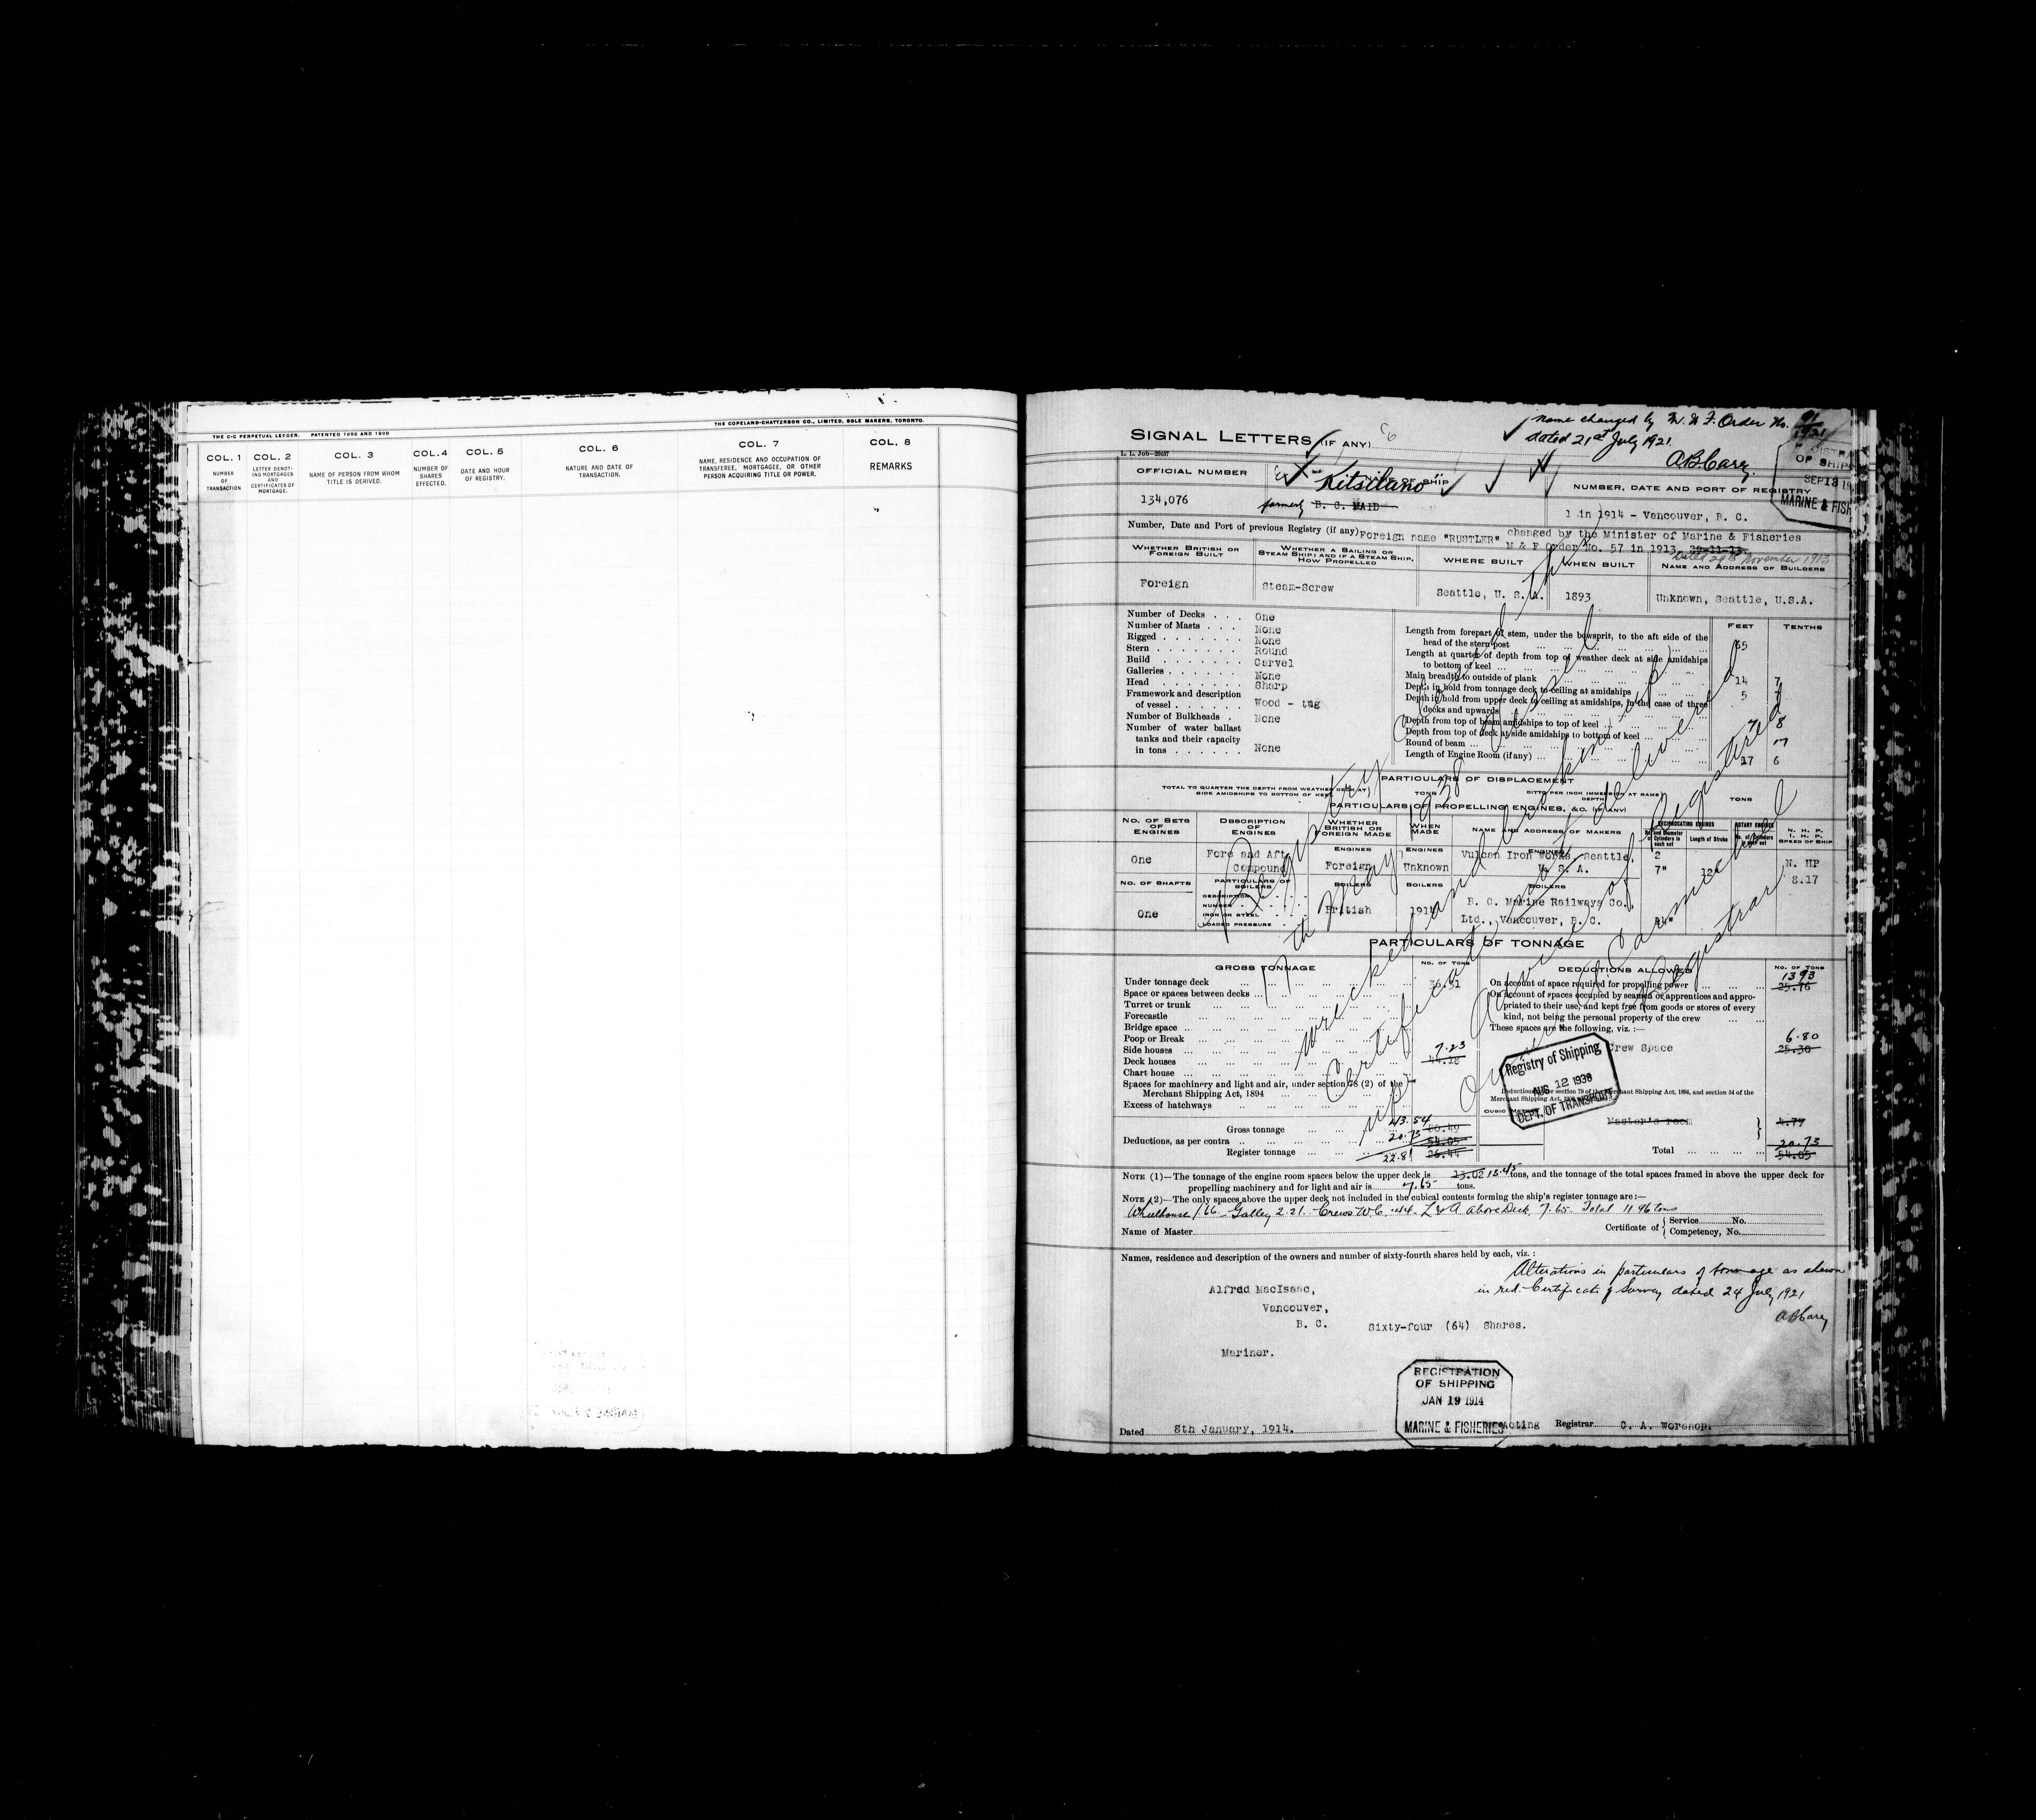 THE C-C PERPETUAL LEDGER. PATENTED 1896 AND 1900
THE COPELAND-CHATTERSON CO., LIMITED, SOLE MAKERS, TORONTO.
COL. 1 COL. 2 COL. 3 COL. 4 COL. 5 COL. 6 COL. 7 COL. 8
NUMBER OF TRANSACTION
LETTER DENOTING MORTGAGES AND CERTIFICATES OF MORTGAGE.
NAME OF PERSON FROM WHOM TITLE IS DERIVED.
NUMBER OF SHARES EFFECTED.
DATE AND HOUR OF REGISTRY.
NATURE AND DATE OF TRANSACTION.
NAME, RESIDENCE AND OCCUPATION OF TRANSFEREE, MORTGAGEE, OR OTHER PERSON ACQUIRING TITLE OR POWER.
REMARKS
name changed by M. & F. Order No. 91/1921
dated 21st July 1921.
A B Carey.
SIGNAL LETTERS (IF ANY)
L. L. Job—29457
OF SHIP
SEP 13 19
MARINE & FISH
OFFICIAL NUMBER
NAME OF SHIP
NUMBER, DATE AND PORT OF REGISTRY
134,076
"Kitsilano"
formerly B. C. MAID
1 in 1914 - Vancouver, B. C.
Number, Date and Port of previous Registry (if any) Foreign name "RUSTLER" changed by the Minister of Marine & Fisheries
M & F Order No. 57 in 1913, 29-11-13
Dated 29th November 1913
WHETHER BRITISH OR FOREIGN BUILT
WHETHER A SAILING OR STEAM SHIP: AND IF A STEAM SHIP, HOW PROPELLED
WHERE BUILT
WHEN BUILT
NAME AND ADDRESS OF BUILDERS
Foreign
Steam-Screw
Seattle, U. S. A.
1893
Unknown, Seattle, U.S.A.
Number of Decks . . . One
Number of Masts . . . None
Rigged . . . . . . . None
Stern . . . . . . . . Round
Build . . . . . . . Carvel
Galleries . . . . . . . None
Head . . . . . . . Sharp
Framework and description
of vessel . . . . . . Wood - tug
Number of Bulkheads . None
Number of water ballast
tanks and their capacity
in tons . . . . . . None
FEET TENTHS
Length from forepart of stem, under the bowsprit, to the aft side of the
head of the stern post 65
Length at quarter of depth from top of weather deck at side amidships
to bottom of keel
Main breadth to outside of plank 14 7
Depth in hold from tonnage deck to ceiling at amidships 5 7
Depth in hold from upper deck to ceiling at amidships, in the case of three
decks and upwards
Depth from top of beam amidships to top of keel
Depth from top of deck at side amidships to bottom of keel 7 8
Round of beam
Length of Engine Room (if any) 17 6
PARTICULARS OF DISPLACEMENT
TOTAL TO QUARTER THE DEPTH FROM WEATHER DECK AT SIDE AMIDSHIPS TO BOTTOM OF KEEL
TONS
DITTO PER INCH IMMERSION AT SAME DEPTH
TONS
PARTICULARS OF PROPELLING ENGINES, &C. (IF ANY)
NO. OF SETS OF ENGINES
DESCRIPTION OF ENGINES
WHETHER BRITISH OR FOREIGN MADE
WHEN MADE
NAME AND ADDRESS OF MAKERS
RECIPROCATING ENGINES
ROTARY ENGINES
Length of Stroke
N. H. P.
I. H. P.
SPEED OF SHIP
ENGINES ENGINES ENGINES
One
Fore and Aft Compound
Foreign
Unknown
Vulcan Iron Works, Seattle, U. S. A.
2
7"
12
N. HP
8.17
NO. OF SHAFTS
PARTICULARS OF BOILERS
BOILERS BOILERS BOILERS
DESCRIPTION
NUMBER
IRON OR STEEL
LOADED PRESSURE
One
British
1914
B. C. Marine Railways Co.
Ltd., Vancouver, B. C.
Registry closed this
17th May 1938 Vessel
wrecked and broken up
Certificate not delivered
up
Advice of Registered
Owner
Registrar
PARTICULARS OF TONNAGE
GROSS TONNAGE
NO. OF TONS
DEDUCTIONS ALLOWED
NO. OF TONS
Under tonnage deck 36.31
Space or spaces between decks
Turret or trunk
Forecastle
Bridge space
Poop or Break
Side houses 7.23
Deck houses
Chart house
Spaces for machinery and light and air, under section 78 (2) of the
Merchant Shipping Act, 1894
Excess of hatchways
Gross tonnage 43.54
Deductions, as per contra 20.73 54.05
Register tonnage 22.81 26.44
On account of space required for propelling power 13 93 25.76
On account of spaces occupied by seamen or apprentices and appropriated to their use, and kept free from goods or stores of every
kind, not being the personal property of the crew
These spaces are the following, viz. :—
Crew Space 6.80
Registry of Shipping
AUG 12 1938
DEPT. OF TRANSPORT
Master's room 4.77
Total 20.73 54.05
NOTE (1)—The tonnage of the engine room spaces below the upper deck is 13.02 15.45 tons, and the tonnage of the total spaces framed in above the upper deck for
propelling machinery and for light and air is 7.65 tons.
NOTE (2)—The only spaces above the upper deck not included in the cubical contents forming the ship's register tonnage are :—
Wheelhouse 1.66 - Galley 2.21. Crews W.C. .44. L & A. above Deck, 7.65. Total 11.96 tons
Name of Master
Certificate of { Service No.
Competency, No.
Names, residence and description of the owners and number of sixty-fourth shares held by each, viz. :
Alterations in particulars of tonnage as shown
in red. Certificate of Survey dated 24 July 1921
A B Carey
Alfred MacIsaac,
Vancouver,
B. C. Sixty-four (64) Shares.
Mariner.
REGISTRATION
OF SHIPPING
JAN 19 1914
MARINE & FISHERIES
Dated 8th January, 1914.
Acting Registrar C. A. Worsnop.